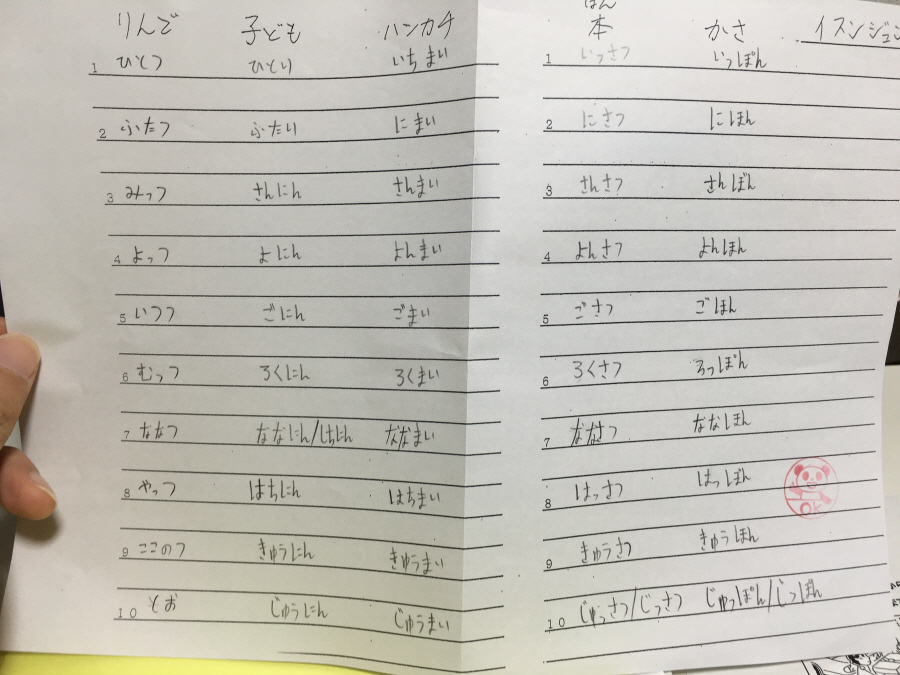 りんで 子ども ハンカチ
1 ひとつ ひとり いちまい
2 ふたつ ふたり にまい
3 みっつ さんにん さんまい
4 よっつ よにん よんまい
5 いつつ ごにん ごまい
6 むっつ ろくにん ろくまい
7 ななつ ななにん/しちにん ななまい
8 やっつ はちにん はちまい
9 ここのつ きゅうにん きゅうまい
10 とお じゅうにん じゅうまい
ほん
本 かさ イスンジュン
1 いっさつ いっぽん
2 にさつ にほん
3 さんさつ さんぼん
4 よんさつ よんほん
5 ごさつ ごほん
6 ろくさつ ろっぽん
7 ななさつ ななほん
8 はっさつ はっぽん
9 きゅうさつ きゅうほん
10 じゅっさつ/じっさつ じゅっぽん/じっぽん
OK